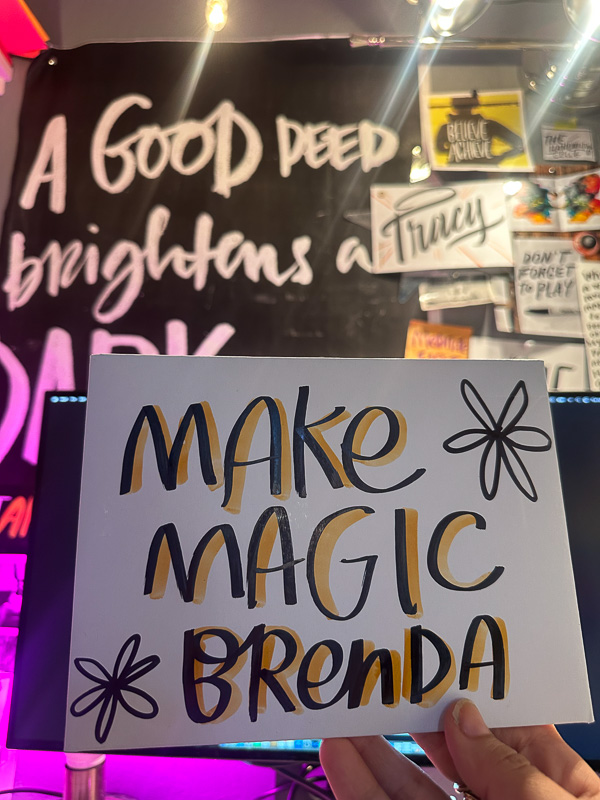 A GOOD DEED
brightens a
DARK
BELIEVE
ACHIEVE
Tracy
DON'T
FORGET
TO PLAY
MAKE
MAGIC
BRenDA